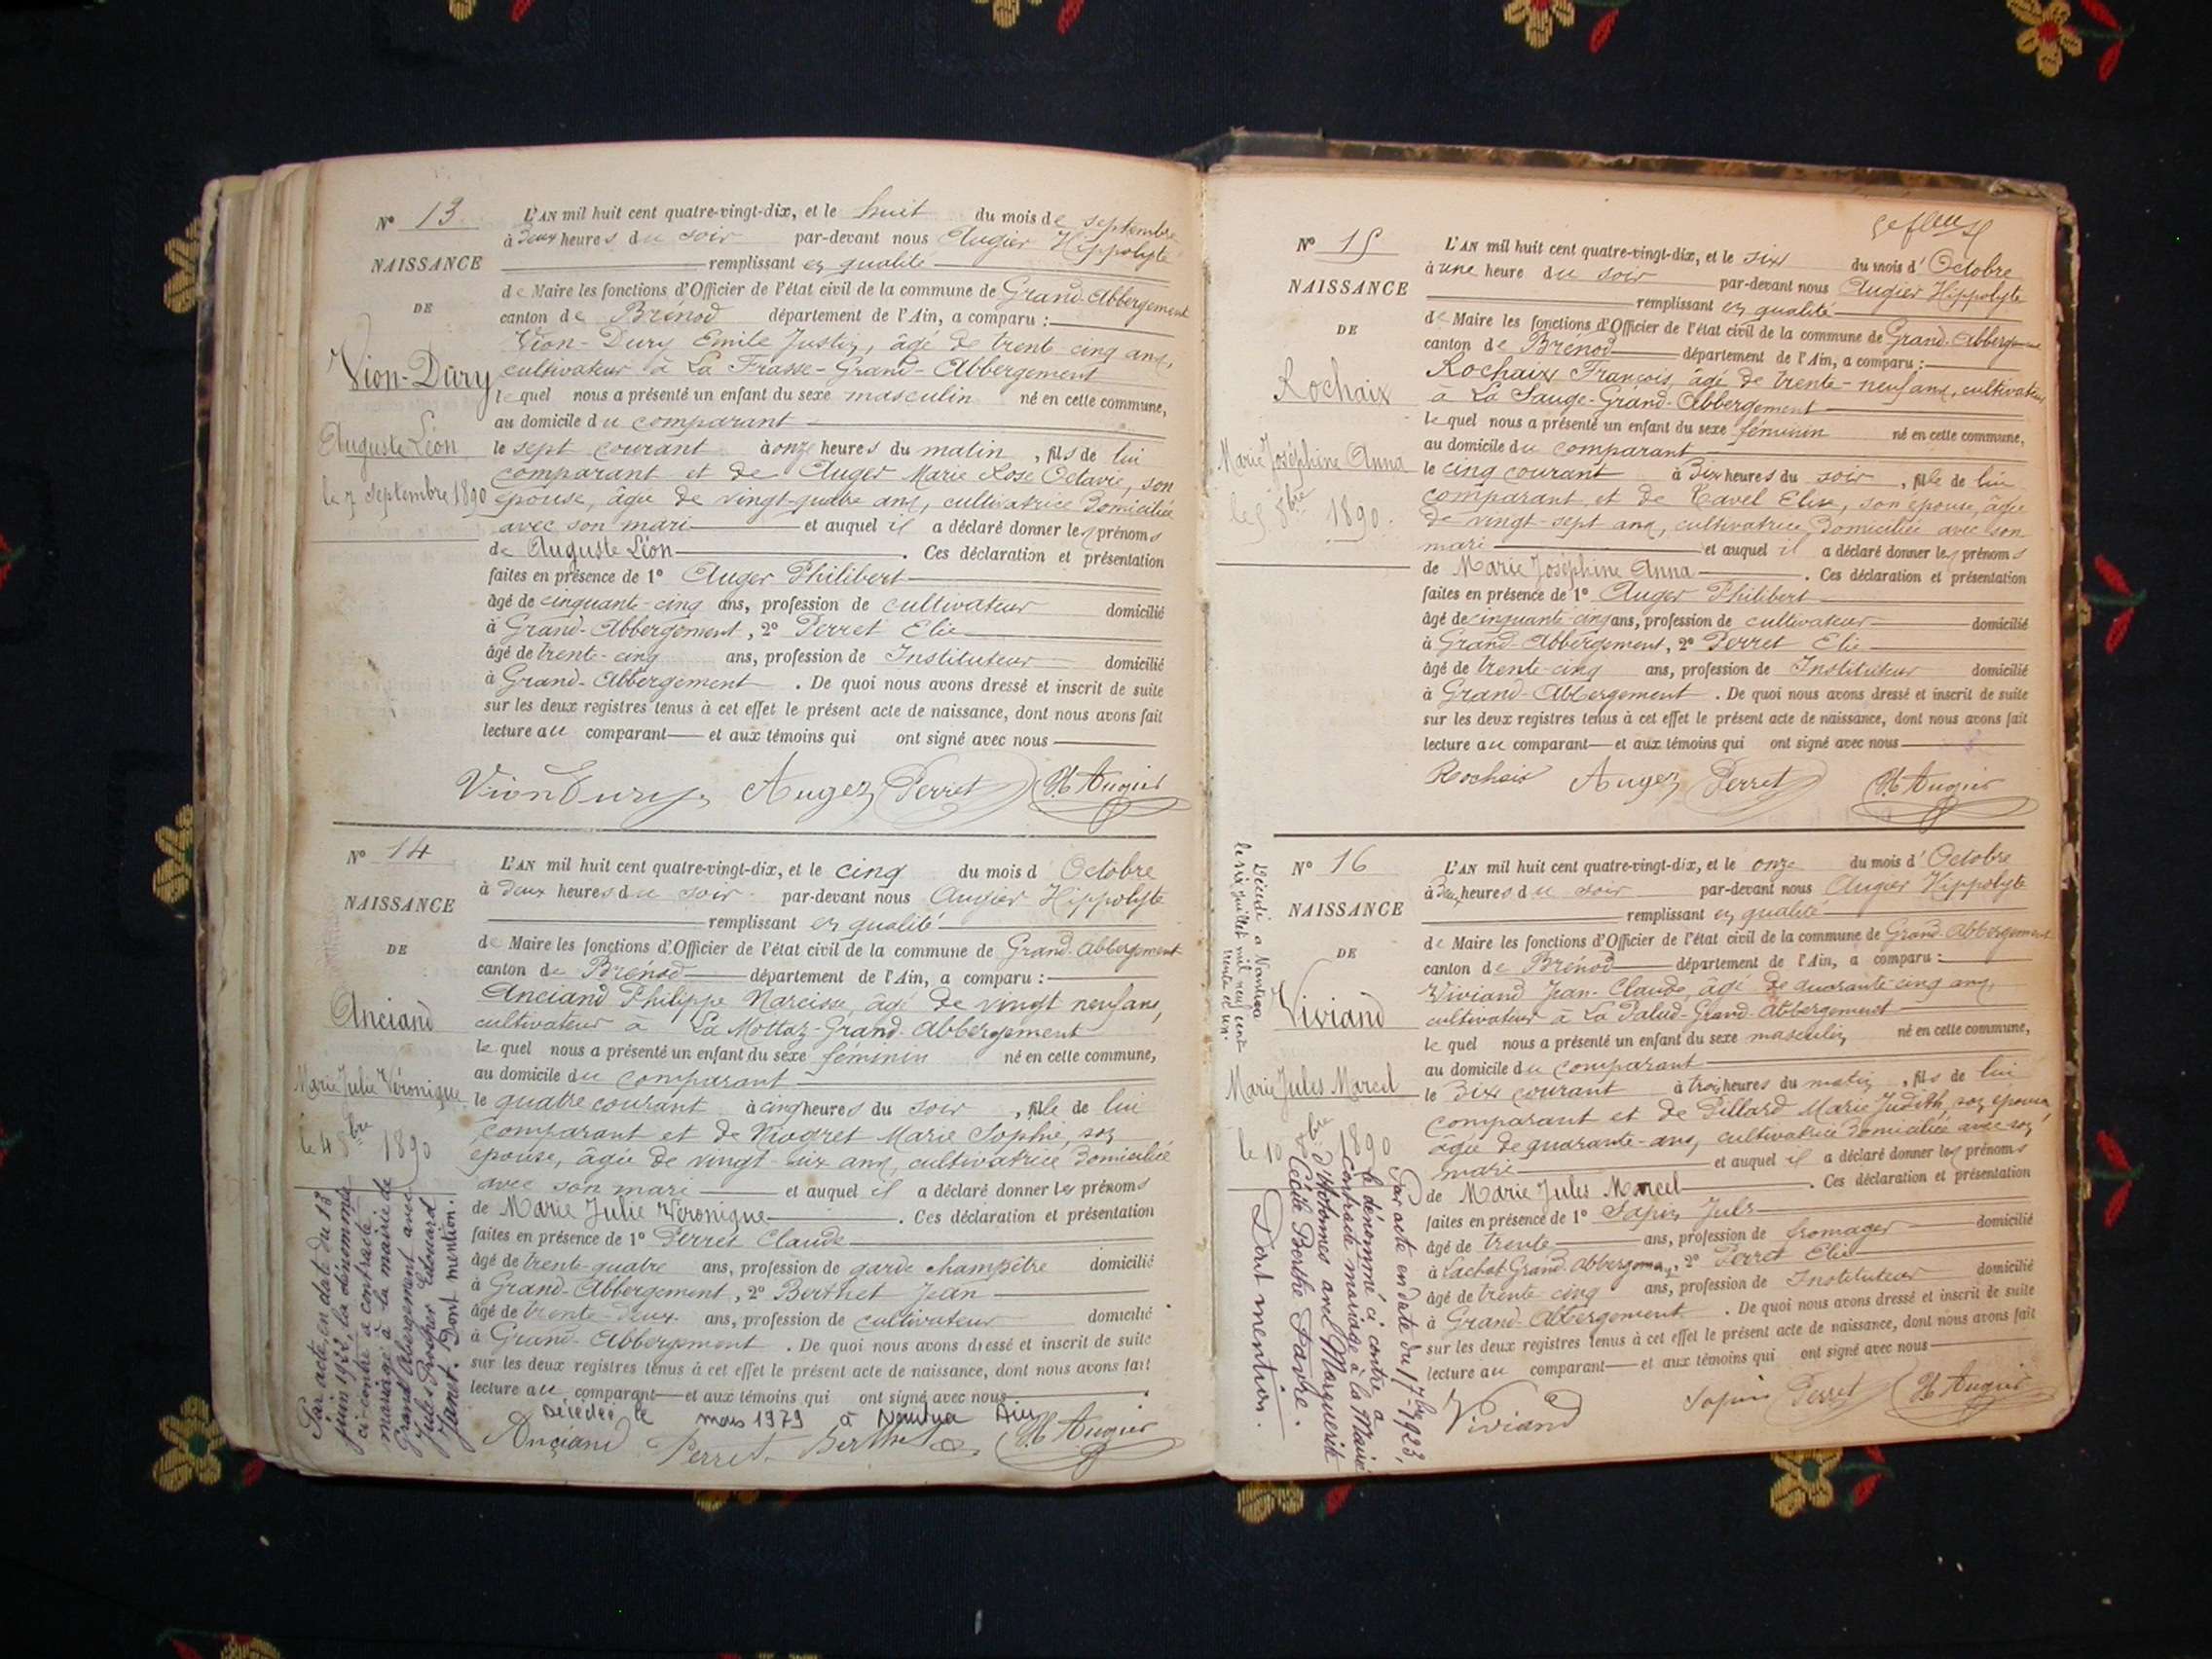 N° 13
NAISSANCE
DE
Vion-Dury
Auguste Léon
le 7 septembre 1890
L'AN mil huit cent quatre-vingt-dix, et le huit du mois de septembre
à deux heures du soir par-devant nous Augier Hippolyte
remplissant en qualité
de Maire les fonctions d'Officier de l'état civil de la commune de Grand-Abbergement
canton de Brénod département de l'Ain, a comparu :
Vion-Dury Emile Justin, âgé de trente cinq ans,
cultivateur à La Frasse-Grand-Abbergement
lequel nous a présenté un enfant du sexe masculin né en cette commune,
au domicile du comparant
le sept courant à onze heures du matin, fils de lui
comparant et de Auger Marie Rose Octavie, son
épouse, âgée de vingt-quatre ans, cultivatrice domiciliée
avec son mari et auquel il a déclaré donner les prénoms
de Auguste Léon. Ces déclaration et présentation
faites en présence de 1° Auger Philibert
âgé de cinquante-cinq ans, profession de cultivateur domicilié
à Grand-Abbergement, 2° Perret Elie
âgé de trente-cinq ans, profession de Instituteur domicilié
à Grand-Abbergement. De quoi nous avons dressé et inscrit de suite
sur les deux registres tenus à cet effet le présent acte de naissance, dont nous avons fait
lecture au comparant et aux témoins qui ont signé avec nous
Vion Dury Auger Perret H Augier
N° 14
NAISSANCE
DE
Anciand
Marie Julie Véronique
le 4 8bre 1890
L'AN mil huit cent quatre-vingt-dix, et le cinq du mois d Octobre
à deux heures du soir par-devant nous Augier Hippolyte
remplissant en qualité
de Maire les fonctions d'Officier de l'état civil de la commune de Grand-Abbergement
canton de Brénod département de l'Ain, a comparu :
Anciand Philippe Narcisse, âgé de vingt neuf ans,
cultivateur à La Mottaz-Grand-Abbergement
lequel nous a présenté un enfant du sexe féminin né en cette commune,
au domicile du comparant
le quatre courant à cinq heures du soir, fille de lui
comparant et de Niogret Marie Sophie, son
épouse, âgée de vingt-six ans, cultivatrice domiciliée
avec son mari et auquel il a déclaré donner les prénoms
de Marie Julie Véronique. Ces déclaration et présentation
faites en présence de 1° Perret Claude
âgé de trente-quatre ans, profession de garde champêtre domicilié
à Grand-Abbergement, 2° Berthet Jean
âgé de trente-deux ans, profession de cultivateur domicilié
à Grand-Abbergement. De quoi nous avons dressé et inscrit de suite
sur les deux registres tenus à cet effet le présent acte de naissance, dont nous avons fait
lecture au comparant et aux témoins qui ont signé avec nous
Décédée le mars 1979 à Nantua Ain
Anciand Perret Berthet H Augier
Par acte en date du 13
juin 1922, la dénommée
ci-contre a contracté
mariage à la mairie de
Grand Abergement avec
Jules Prosper Edouard
Janet. Dont mention.
N° 15
NAISSANCE
DE
Rochaix
Marie Joséphine Anna
le 5 8bre 1890.
L'AN mil huit cent quatre-vingt-dix, et le six du mois d' Octobre
à une heure du soir par-devant nous Augier Hippolyte
remplissant en qualité
de Maire les fonctions d'Officier de l'état civil de la commune de Grand-Abbergement
canton de Brénod département de l'Ain, a comparu :
Rochaix François, âgé de trente-neuf ans, cultivateur
à La Sauge-Grand-Abbergement
lequel nous a présenté un enfant du sexe féminin né en cette commune,
au domicile du comparant
le cinq courant à dix heures du soir, fille de lui
comparant et de Ravel Elise, son épouse, âgée
de vingt-sept ans, cultivatrice domiciliée avec son
mari et auquel il a déclaré donner les prénoms
de Marie Joséphine Anna. Ces déclaration et présentation
faites en présence de 1° Auger Philibert
âgé de cinquante cinq ans, profession de cultivateur domicilié
à Grand-Abbergement, 2° Perret Elie
âgé de trente-cinq ans, profession de Instituteur domicilié
à Grand-Abbergement. De quoi nous avons dressé et inscrit de suite
sur les deux registres tenus à cet effet le présent acte de naissance, dont nous avons fait
lecture au comparant et aux témoins qui ont signé avec nous
Rochaix Auger Perret H Augier
N° 16
NAISSANCE
DE
Viviand
Marie Jules Marcel
le 10 8bre 1890
Décédé à Nantua
le six juillet mil neuf cent
trente et un.
L'AN mil huit cent quatre-vingt-dix, et le onze du mois d' Octobre
à deux heures du soir par-devant nous Augier Hippolyte
remplissant en qualité
de Maire les fonctions d'Officier de l'état civil de la commune de Grand-Abbergement
canton de Brénod département de l'Ain, a comparu :
Viviand Jean-Claude, âgé de quarante cinq ans,
cultivateur à La Palud-Grand-Abbergement
lequel nous a présenté un enfant du sexe masculin né en cette commune,
au domicile du comparant
le dix courant à trois heures du matin, fils de lui
comparant et de Pillard Marie Judith, son épouse,
âgée de quarante-ans, cultivatrice domiciliée avec son
mari et auquel il a déclaré donner les prénoms
de Marie Jules Marcel. Ces déclaration et présentation
faites en présence de 1° Sapin Jules
âgé de trente ans, profession de fromager domicilié
à Lachat Grand-Abbergement, 2° Perret Elie
âgé de trente cinq ans, profession de Instituteur domicilié
à Grand-Abbergement. De quoi nous avons dressé et inscrit de suite
sur les deux registres tenus à cet effet le présent acte de naissance, dont nous avons fait
lecture au comparant et aux témoins qui ont signé avec nous
Viviand Sapin Perret H Augier
Par acte en date du 17 1923,
le dénommé ci contre a
contracté mariage à la Mairie
d'Hotonnes avec Marguerite
Cécile Berthe Favre.
Dont mention.